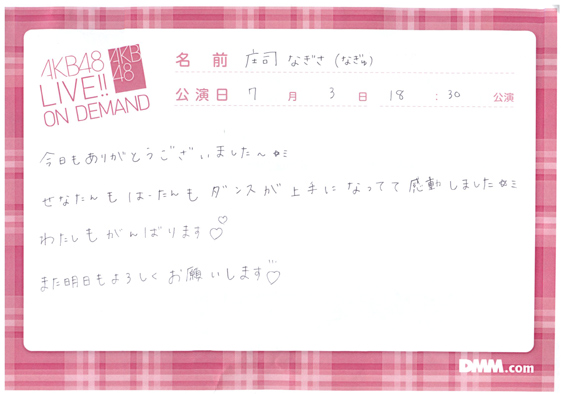 AKB48
LIVE!!
ON DEMAND
AKB
48
名前 庄司なぎさ(なぎゅ)
公演日 7月3日 18:30 公演
今日もありがとうございました〜☆ミ
せなたんもはーたんもダンスが上手になってて感動しました☆ミ
わたしもがんばります♡
また明日もよろしくお願いします♡
DMM.com